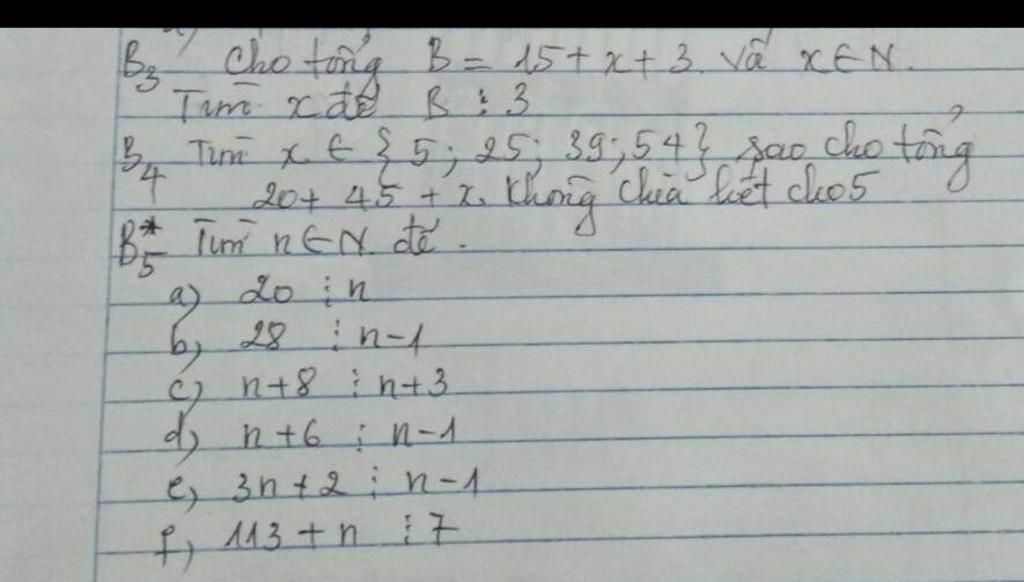 B3 Cho tổng B = 15 + x + 3. và x ∈ N.
Tìm x để B ⋮ 3
B4 Tìm x ∈ {5; 25; 39; 54} sao cho tổng
20 + 45 + x. không chia hết cho 5
B5* Tìm n ∈ N để.
a) 20 ⋮ n
b, 28 ⋮ n-1
c) n+8 ⋮ n+3
d) n+6 ⋮ n-1
e, 3n+2 ⋮ n-1
f, 113 + n ⋮ 7